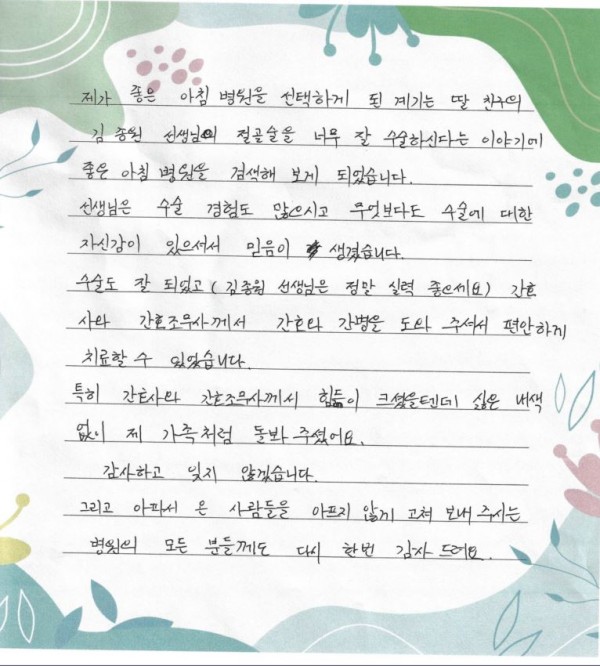 제가 좋은 아침 병원을 선택하게 된 계기는 딸 친구의
김 종원 선생님의 절골술을 너무 잘 수술하신다는 이야기에
좋은 아침 병원을 검색해 보게 되었습니다.
선생님은 수술 경험도 많으시고 무엇보다도 수술에 대한
자신감이 있으셔서 믿음이 생겼습니다.
수술도 잘 되었고 (김종원 선생님은 정말 실력 좋으세요) 간호
사와 간호조무사께서 간호와 간병을 도와 주셔서 편안하게
치료할 수 있었습니다.
특히 간호사와 간호조무사께서 힘듦이 크셨을텐데 싫은 내색
없이 제 가족처럼 돌봐 주셨어요.
감사하고 잊지 않겠습니다.
그리고 아파서 온 사람들을 아프지 않게 고쳐 보내 주시는
병원의 모든 분들께도 다시 한번 감사 드려요.